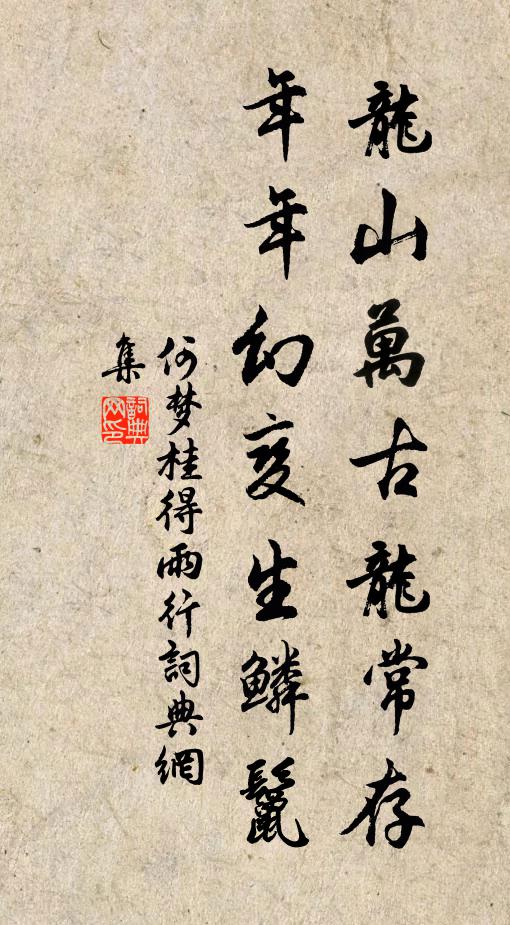 龍山萬古龍常存
年年幻变生鱗鬣
何梦桂得雨行詞典網
集
詞典网印